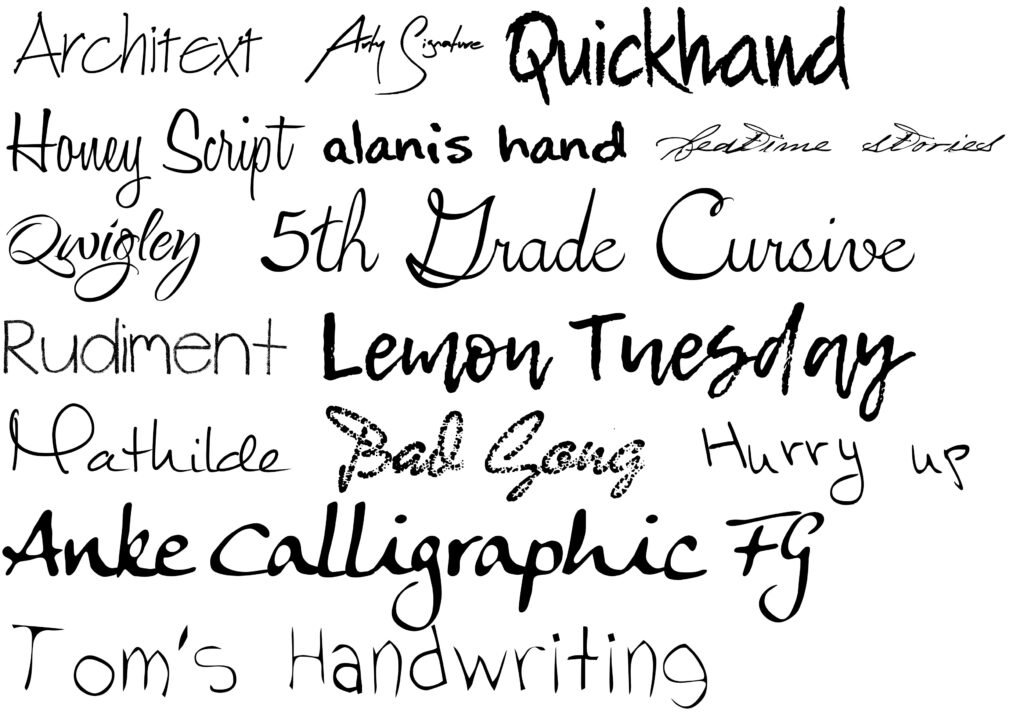 Architext Arty Signature Quickhand
Honey Script alanis hand Bedtime stories
Qwigley 5th Grade Cursive
Rudiment Lemon Tuesday
Mathilde Bad Gong Hurry up
Anke Calligraphic FG
Tom's Handwriting